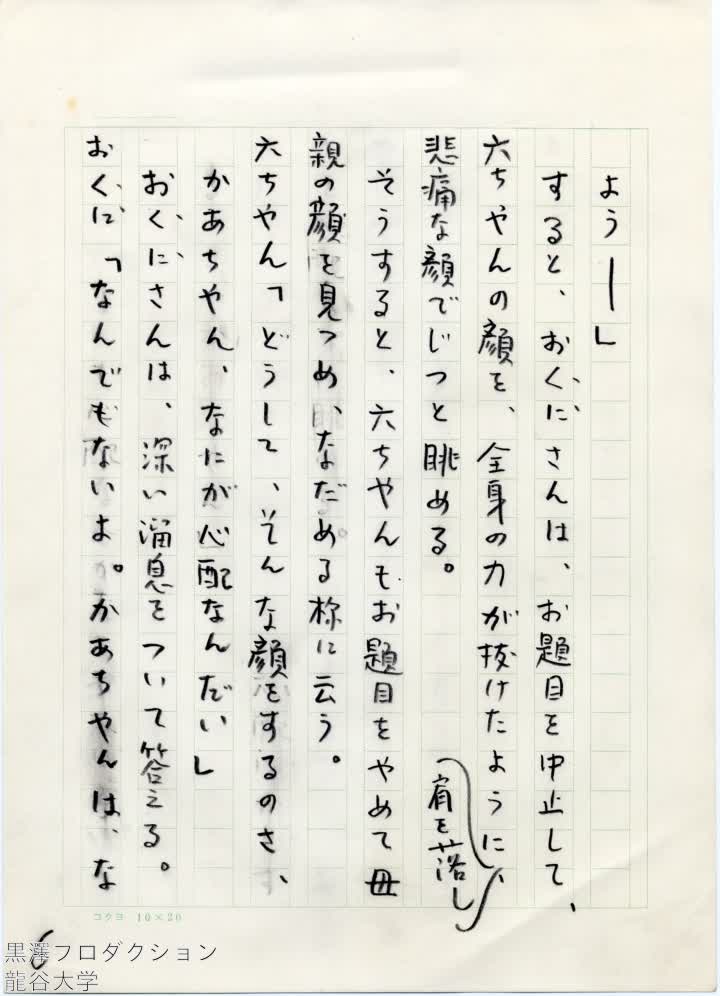 よう――」
すると、おくにさんは、お題目を中止して、
六ちゃんの顔を、全身の力が抜けたように、
肩を落し
悲痛な顔でじっと眺める。
そうすると、六ちゃんもお題目をやめて母
親の顔を見つめ、なだめる様に云う。
六ちゃん「どうして、そんな顔をするのさ、
かあちゃん、なにが心配なんだい」
おくにさんは、深い溜息をついて答える。
おくに「なんでもないよ。かあちゃんは、な
コクヨ 10×20
6
黒澤プロダクション
龍谷大学